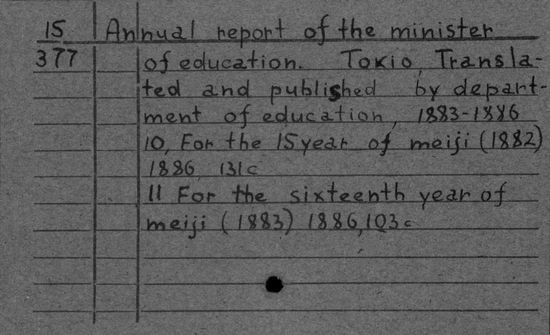 15 Annual report of the minister
377 of education. Tokio, Transla-
ted and published by depart-
ment of education, 1883-1886
10, For the 15 year of meiji (1882)
1886 131c
11 For the sixteenth year of
meiji (1883) 1886, 103c